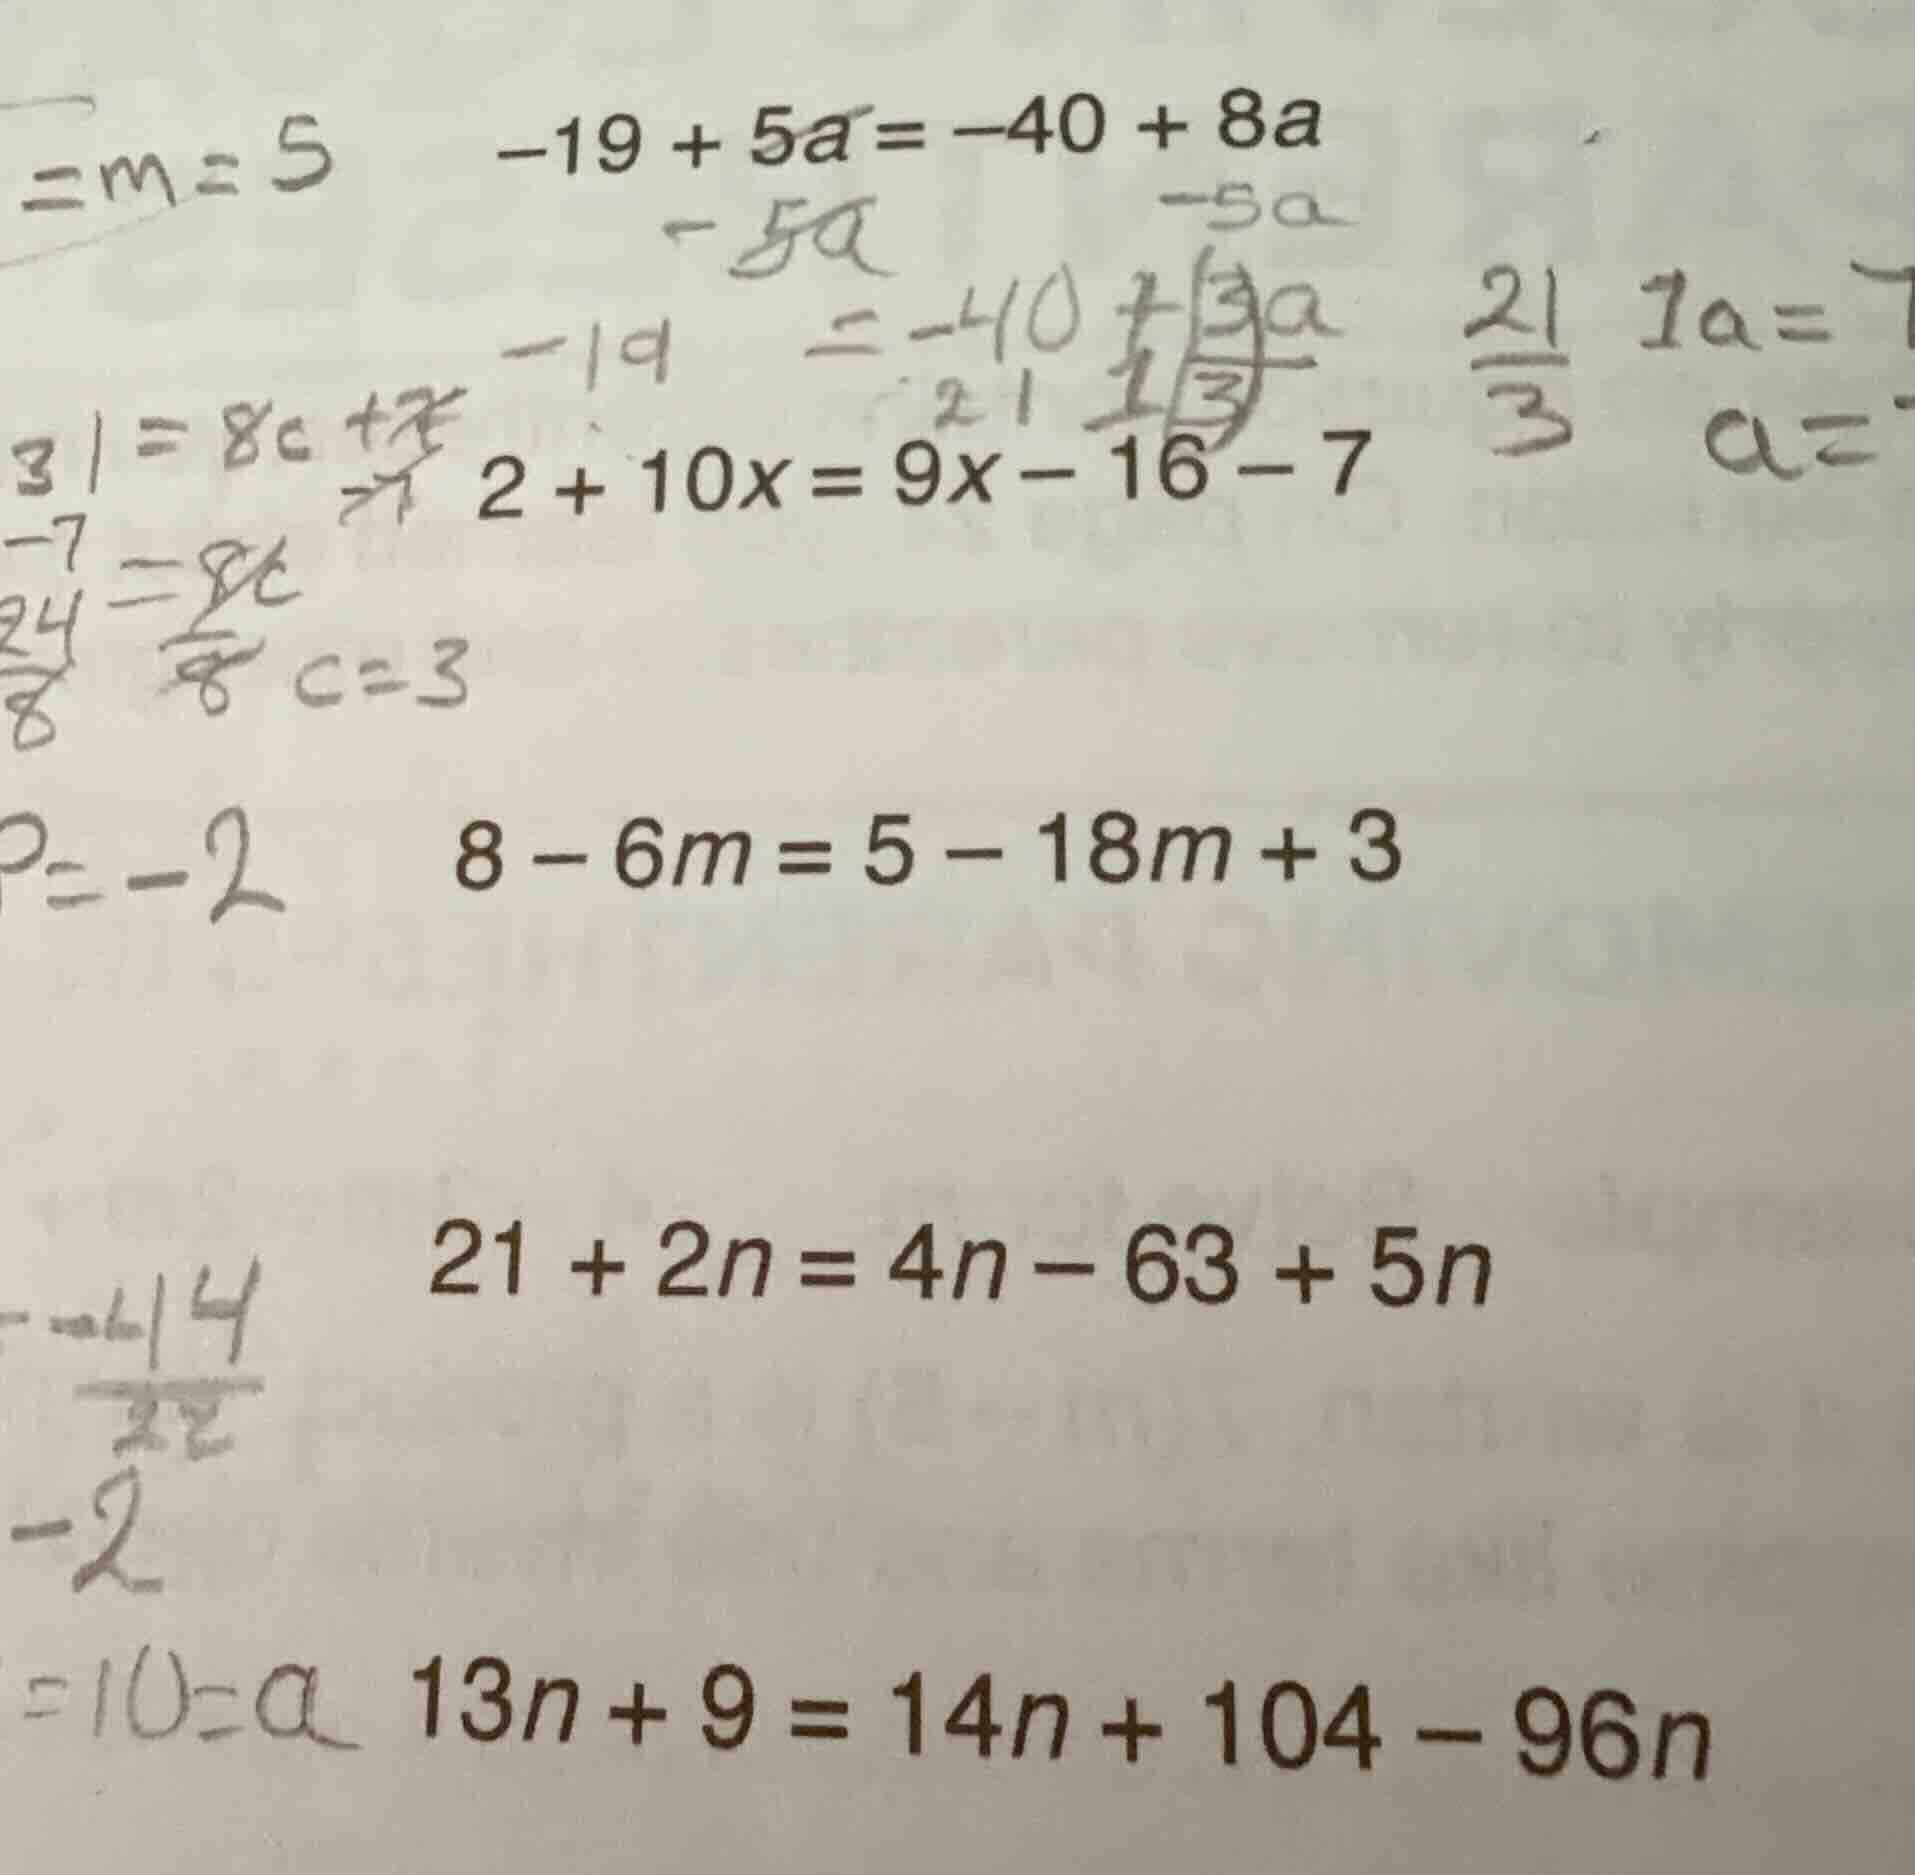 = m = 5
-19 + 5a = -40 + 8a
- 5a -5a
-19 = -40 + 3a
21 1 3
21 1a = 7
3 a =
31 = 8c + 7
-7
2 + 10x = 9x - 16 - 7
-7
= 8c
24
8 8 c = 3
P = -2
8 - 6m = 5 - 18m + 3
21 + 2n = 4n - 63 + 5n
- -44
22
-2
= 10 = a
13n + 9 = 14n + 104 - 96n